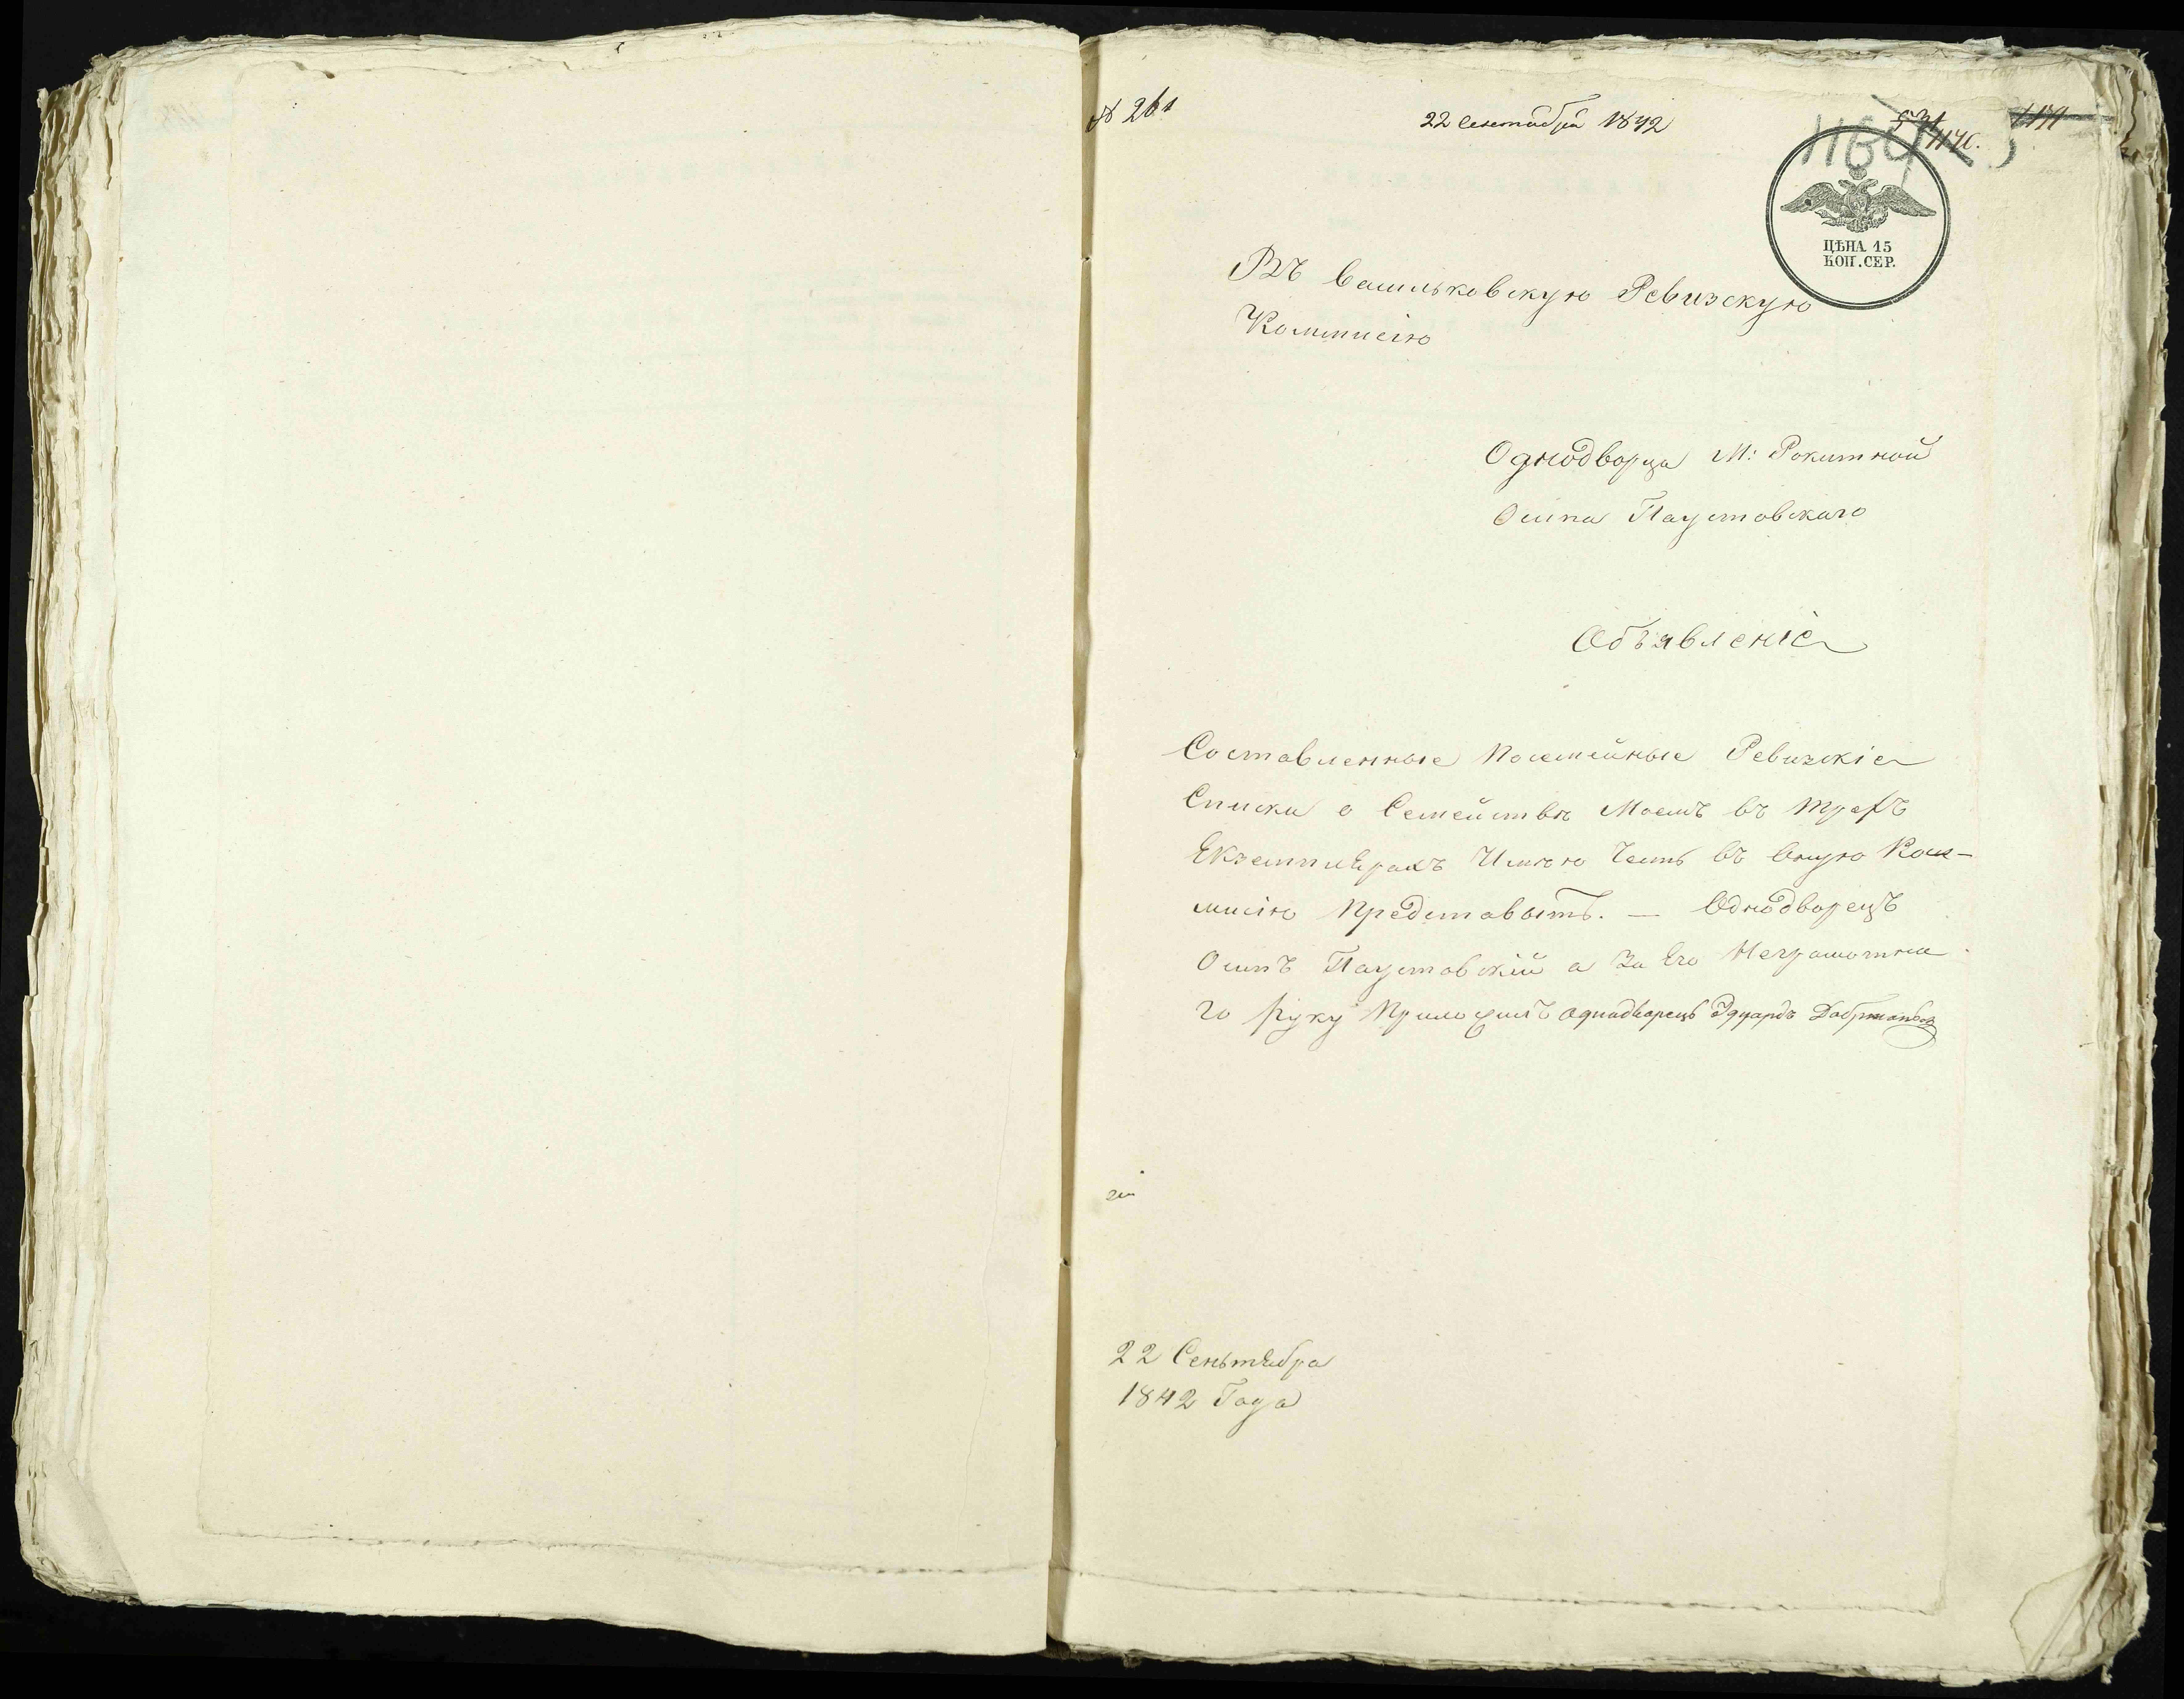 № 261
22 Сентября 1842
1176.
ЦѢНА 15
КОП. СЕР.
Въ Васильковскую Ревизскую
Коммисію
Однодворца М: Рокитной
Осипа Паустовскаго
Объявленіе
Составленные Посемейные Ревизскіе
Списки о Семействѣ Моемъ въ трехъ
Екземплярахъ Имѣю Честь въ Оную Ком-
мисію Представыть. — Однодворецъ
Осипъ Паустовскій а За Его Неграмотна
го Руку Приложилъ Однодворецъ Эдуардъ
22 Сеньтября
1842 Года